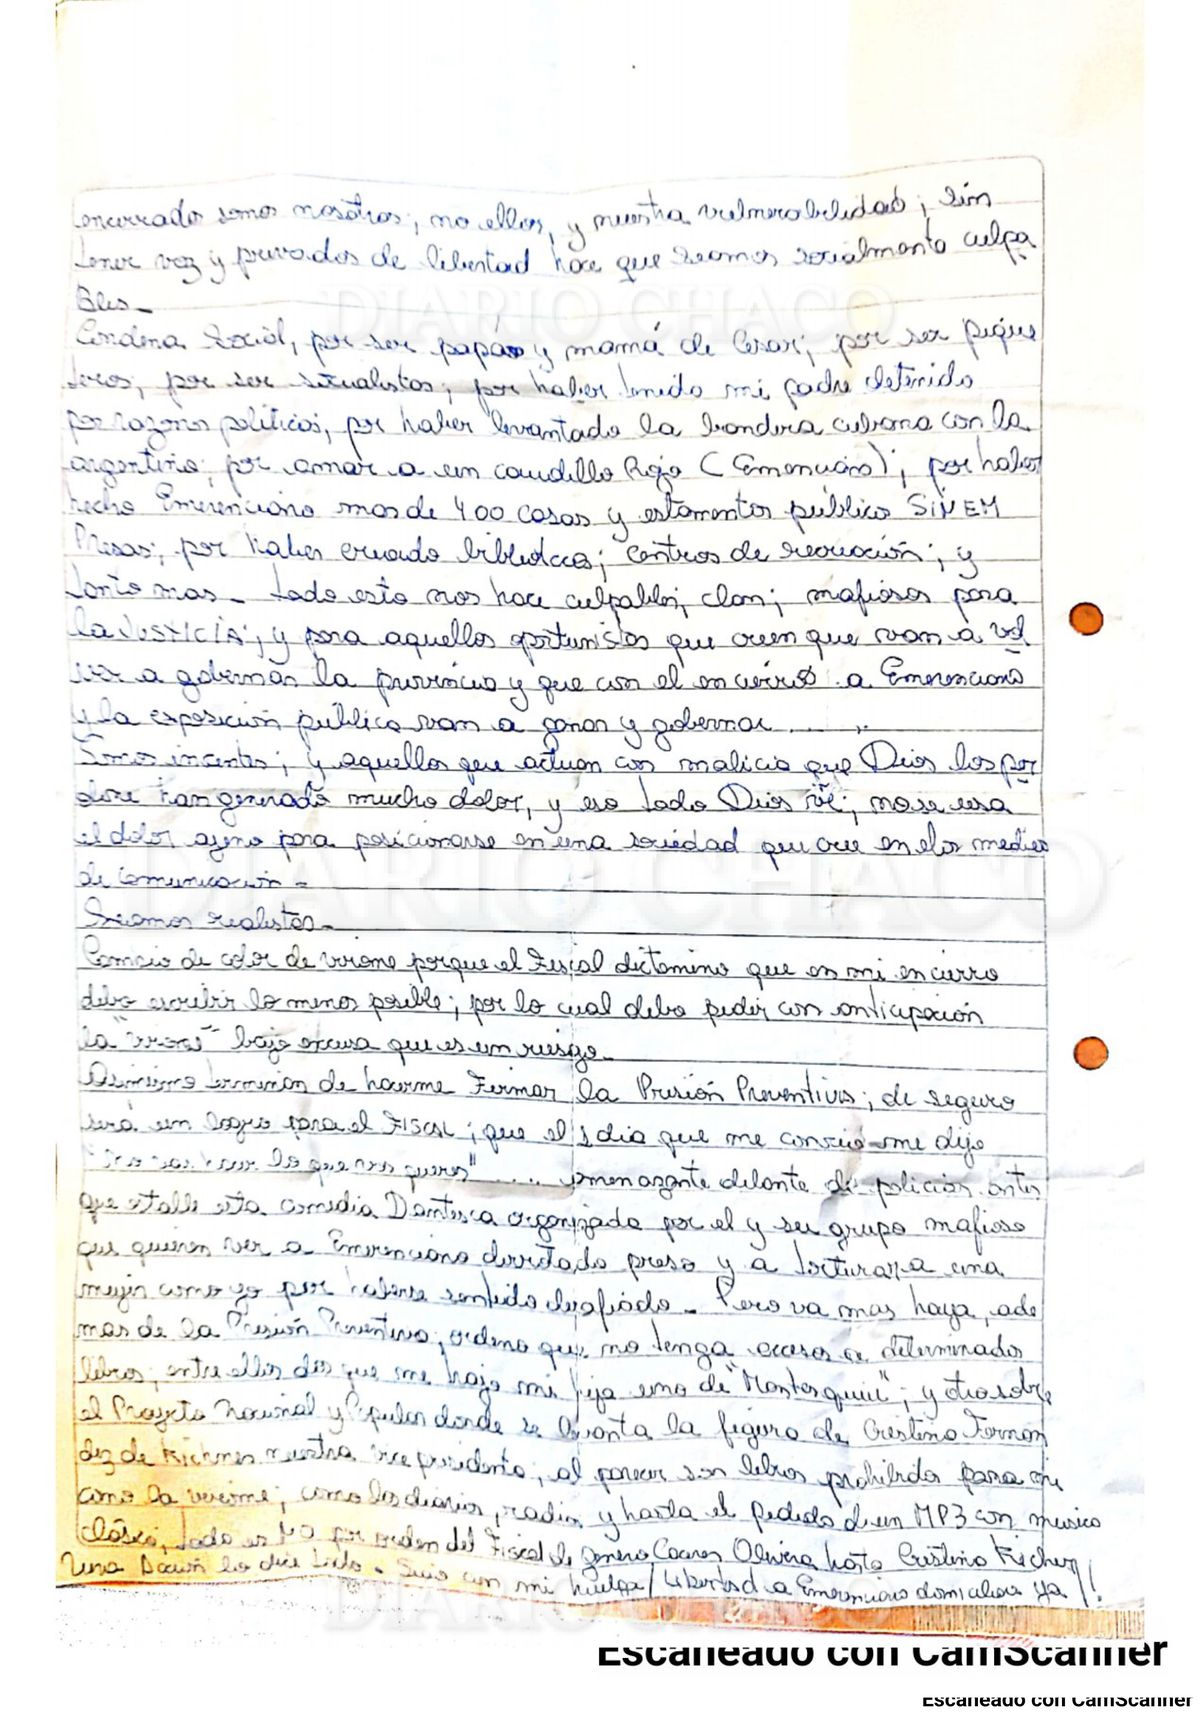 encerrados somos nosotros, no ellos, y nuestra vulnerabilidad; sin
tener voz y privados de libertad hace que seamos socialmente culpa
Bles_
Condena Social, por ser papá y mamá de Cesar; por ser pique
teros; por ser por haber tenido mi padre detenido
por razones politicas; por haber levantado la bandera cubana con la
argentina; por amar a un caudillo Rojo (Emerenciano); por haber
hecho Emerenciano mas de 400 casas y estamentos público SIN EM
Presas; por haber creado bibliotecas; centros de recreación; y
tanto mas_ todo esto nos hace culpables; clan; mafiosos para
la JUSTICIA; y para aquellos oportunistas que creen que van a vol
ver a gobernar la provincia y que con el encierro a Emerenciano
y la exposición pública van a ganar y gobernar .....
Somos ; y aquellos que actuan con malicia que Dios los per
done han generado mucho dolor, y eso todo Dios vé; no se usa
el dolor ajeno para posicionarse en una sociedad que cree en los medios
de comunicación_
Seamos realistas_
Cambio de color de virome porque el Fiscal dictamino que en mi encierro
debo escribir lo menos posible; por lo cual debo pedir con anticipación
la bajo excusa que es un riesgo_
Asimismo terminan de hacerme Firmar la Prisión Preventiva; de seguro
será un logro para el FISCAL; que el dia que me me dijo
lo que vos queres" .... delante de policias antes
que estalle esta comedia Dantesca organizada por el y su grupo mafioso
que quieren ver a Emerenciano derrotado preso y a torturar a una
mujer como yo por haberse sentido desafiado_ Pero va mas haya, ade
mas de la Prisión Preventiva; ordena que no tenga acceso a determinados
libros; entre ellos dos que me trajo mi hija uno de "Montesquiu"; y otro sobre
el Proyecto Nacional y Popular donde se levanta la figura de Cristina Fernan
dez de Kichner nuestra vice presidenta; al parecer son libros prohibidos para mi
como la virome; como los diarios, radios y hasta el pedido de un MP3 con musica
Clásica, todo es NO por orden del Fiscal de genero Caceres Olivera hasta Cristina Kichner
Una lo dice todo. Sigo con mi huelga / Libertad a Emerenciano domiciliaria ya //!
DIARIO CHACO
DIARIO CHACO
DIARIO CHACO
Escaneado con CamScanner
Escaneado con CamScanner